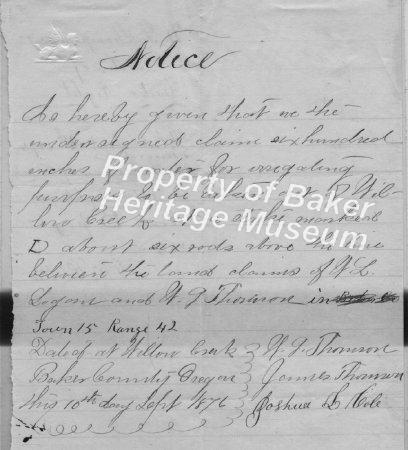 Notice
Is hereby given that we the
undersigned claim six hundred
inches of water for irrigating
purposes to be taken out
Creek
D about six rods above the line
between the land claims of W L
Logan and W. J. Thomson in
Town 15 Range 42
Dated at Willow Creek
Baker County Oregon
this 10th day Sept 1876
W. J. Thomson
James Thomson
Joshua L
Property of Baker
Heritage Museum